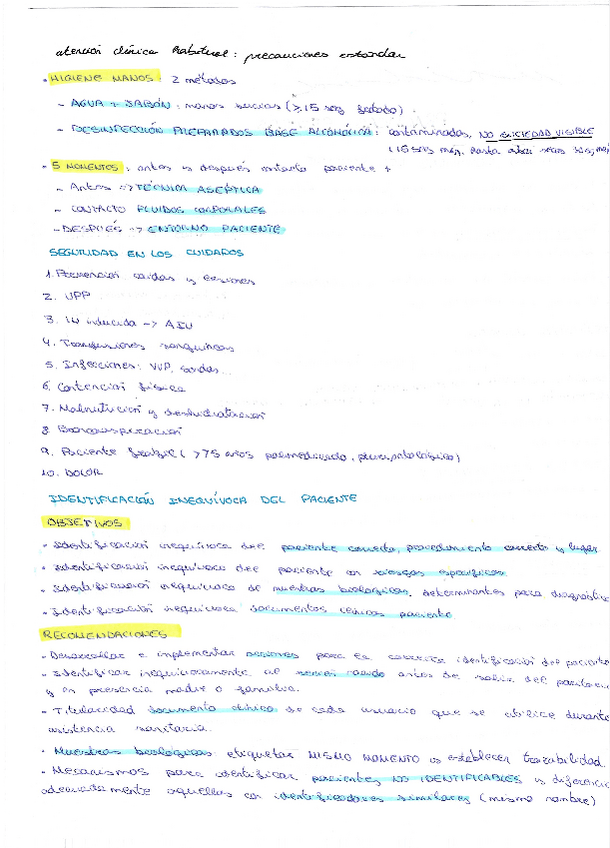 atención clínica habitual: precauciones estándar
• HIGIENE MANOS: 2 métodos
- AGUA + JABÓN: manos sucias (≥15 seg frotado).
- DESINFECCIÓN PREPARADOS BASE ALCOHÓLICA: contaminadas, NO SUCIEDAD VISIBLE
(15 seg mín, hasta
• 5 MOMENTOS: antes y después contacto paciente +
- Antes -> TÉCNICA ASÉPTICA
- CONTACTO FLUIDOS CORPORALES
- DESPUÉS -> ENTORNO PACIENTE
SEGURIDAD EN LOS CUIDADOS
1. Prevención caídas y lesiones
2. UPP
3. IU inducida -> AIU
4. Transfusiones sanguíneas
5. Infecciones: VVP, sondas...
6. Contención física
7. Malnutrición y deshidratación
8. Broncoaspiración
9. Paciente frágil (>75 años polimedicado, pluripatológico)
10. DOLOR
IDENTIFICACIÓN INEQUÍVOCA DEL PACIENTE
OBJETIVOS
• Identificación inequívoca del paciente correcto, procedimiento correcto y lugar
• Identificación inequívoca del paciente con riesgos específicos
• Identificación inequívoca de muestras biológicas, determinantes para diagnóstico
• Identificación inequívoca documentos clínicos paciente
RECOMENDACIONES
• Desarrollar e implementar acciones para la correcta identificación del paciente
• Identificar inequívocamente al recién nacido antes de salir del paritorio
y en presencia madre o familia.
• Titularidad documento clínico de cada usuario que se utilice durante
asistencia sanitaria.
• Muestras biológicas etiquetar MISMO MOMENTO y establecer trazabilidad
• Mecanismos para identificar pacientes NO IDENTIFICABLES y diferenciar
adecuadamente aquellos con identificadores similares (mismo nombre)